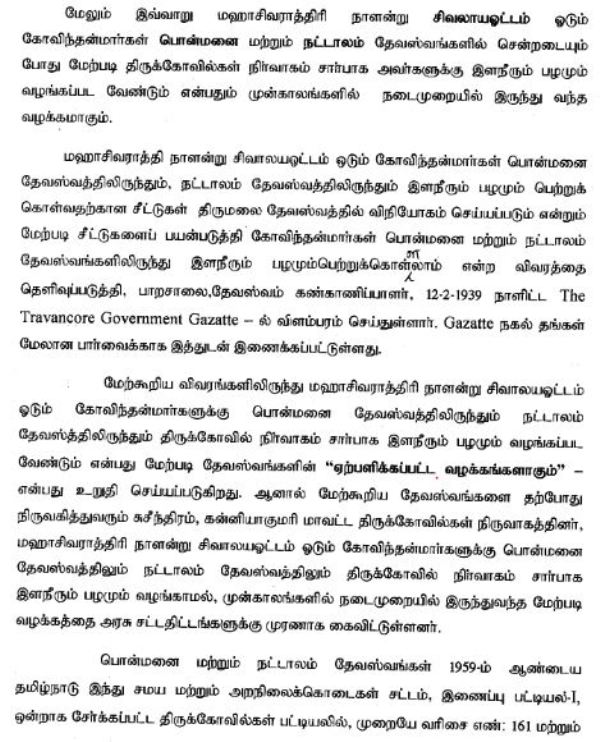 மேலும் இவ்வாறு மஹாசிவராத்திரி நாளன்று சிவலாயஓட்டம் ஓடும்
கோவிந்தன்மார்கள் பொன்மனை மற்றும் நட்டாலம் தேவஸ்வங்களில் சென்றடையும்
போது மேற்படி திருக்கோவில்கள் நிர்வாகம் சார்பாக அவர்களுக்கு இளநீரும் பழமும்
வழங்கப்பட வேண்டும் என்பதும் முன்காலங்களில் நடைமுறையில் இருந்து வந்த
வழக்கமாகும்.
மஹாசிவராத்தி நாளன்று சிவாலயஓட்டம் ஓடும் கோவிந்தன்மார்கள் பொன்மனை
தேவஸ்வத்திலிருந்தும், நட்டாலம் தேவஸ்வத்திலிருந்தும் இளநீரும் பழமும் பெற்றுக்
கொள்வதற்கான சீட்டுகள் திருமலை தேவஸ்வத்தில் விநியோகம் செய்யப்படும் என்றும்
மேற்படி சீட்டுகளைப் பயன்படுத்தி கோவிந்தன்மார்கள் பொன்மனை மற்றும் நட்டாலம்
தேவஸ்வங்களிலிருந்து இளநீரும் பழமும்பெற்றுக்கொள்ளலாம் என்ற விவரத்தை
தெளிவுப்படுத்தி, பாறசாலை,தேவஸ்வம் கண்காணிப்பாளர், 12-2-1939 நாளிட்ட The
Travancore Government Gazatte – ல் விளம்பரம் செய்துள்ளார். Gazatte நகல் தங்கள்
மேலான பார்வைக்காக இத்துடன் இணைக்கப்பட்டுள்ளது.
மேற்கூறிய விவரங்களிலிருந்து மஹாசிவராத்திரி நாளன்று சிவாலயஓட்டம்
ஓடும் கோவிந்தன்மார்களுக்கு பொன்மனை தேவஸ்வத்திலிருந்தும் நட்டாலம்
தேவஸ்த்திலிருந்தும் திருக்கோவில் நிர்வாகம் சார்பாக இளநீரும் பழமும் வழங்கப்பட
வேண்டும் என்பது மேற்படி தேவஸ்வங்களின் “ஏற்பளிக்கப்பட்ட வழக்கங்களாகும்” –
என்பது உறுதி செய்யப்படுகிறது. ஆனால் மேற்கூறிய தேவஸ்வங்களை தற்போது
நிருவகித்துவரும் சுசீந்திரம், கன்னியாகுமரி மாவட்ட திருக்கோவில்கள் நிருவாகத்தினர்,
மஹாசிவராத்திரி நாளன்று சிவாலயஓட்டம் ஓடும் கோவிந்தன்மார்களுக்கு பொன்மனை
தேவஸ்வத்திலும் நட்டாலம் தேவஸ்வத்திலும் திருக்கோவில் நிர்வாகம் சார்பாக
இளநீரும் பழமும் வழங்காமல், முன்காலங்களில் நடைமுறையில் இருந்துவந்த மேற்படி
வழக்கத்தை அரசு சட்டதிட்டங்களுக்கு முரணாக கைவிட்டுள்ளனர்.
பொன்மனை மற்றும் நட்டாலம் தேவஸ்வங்கள் 1959-ம் ஆண்டைய
தமிழ்நாடு இந்து சமய மற்றும் அறநிலைக்கொடைகள் சட்டம், இணைப்பு பட்டியல்-I,
ஒன்றாக சேர்க்கப்பட்ட திருக்கோவில்கள் பட்டியலில், முறையே வரிசை எண்: 161 மற்றும்